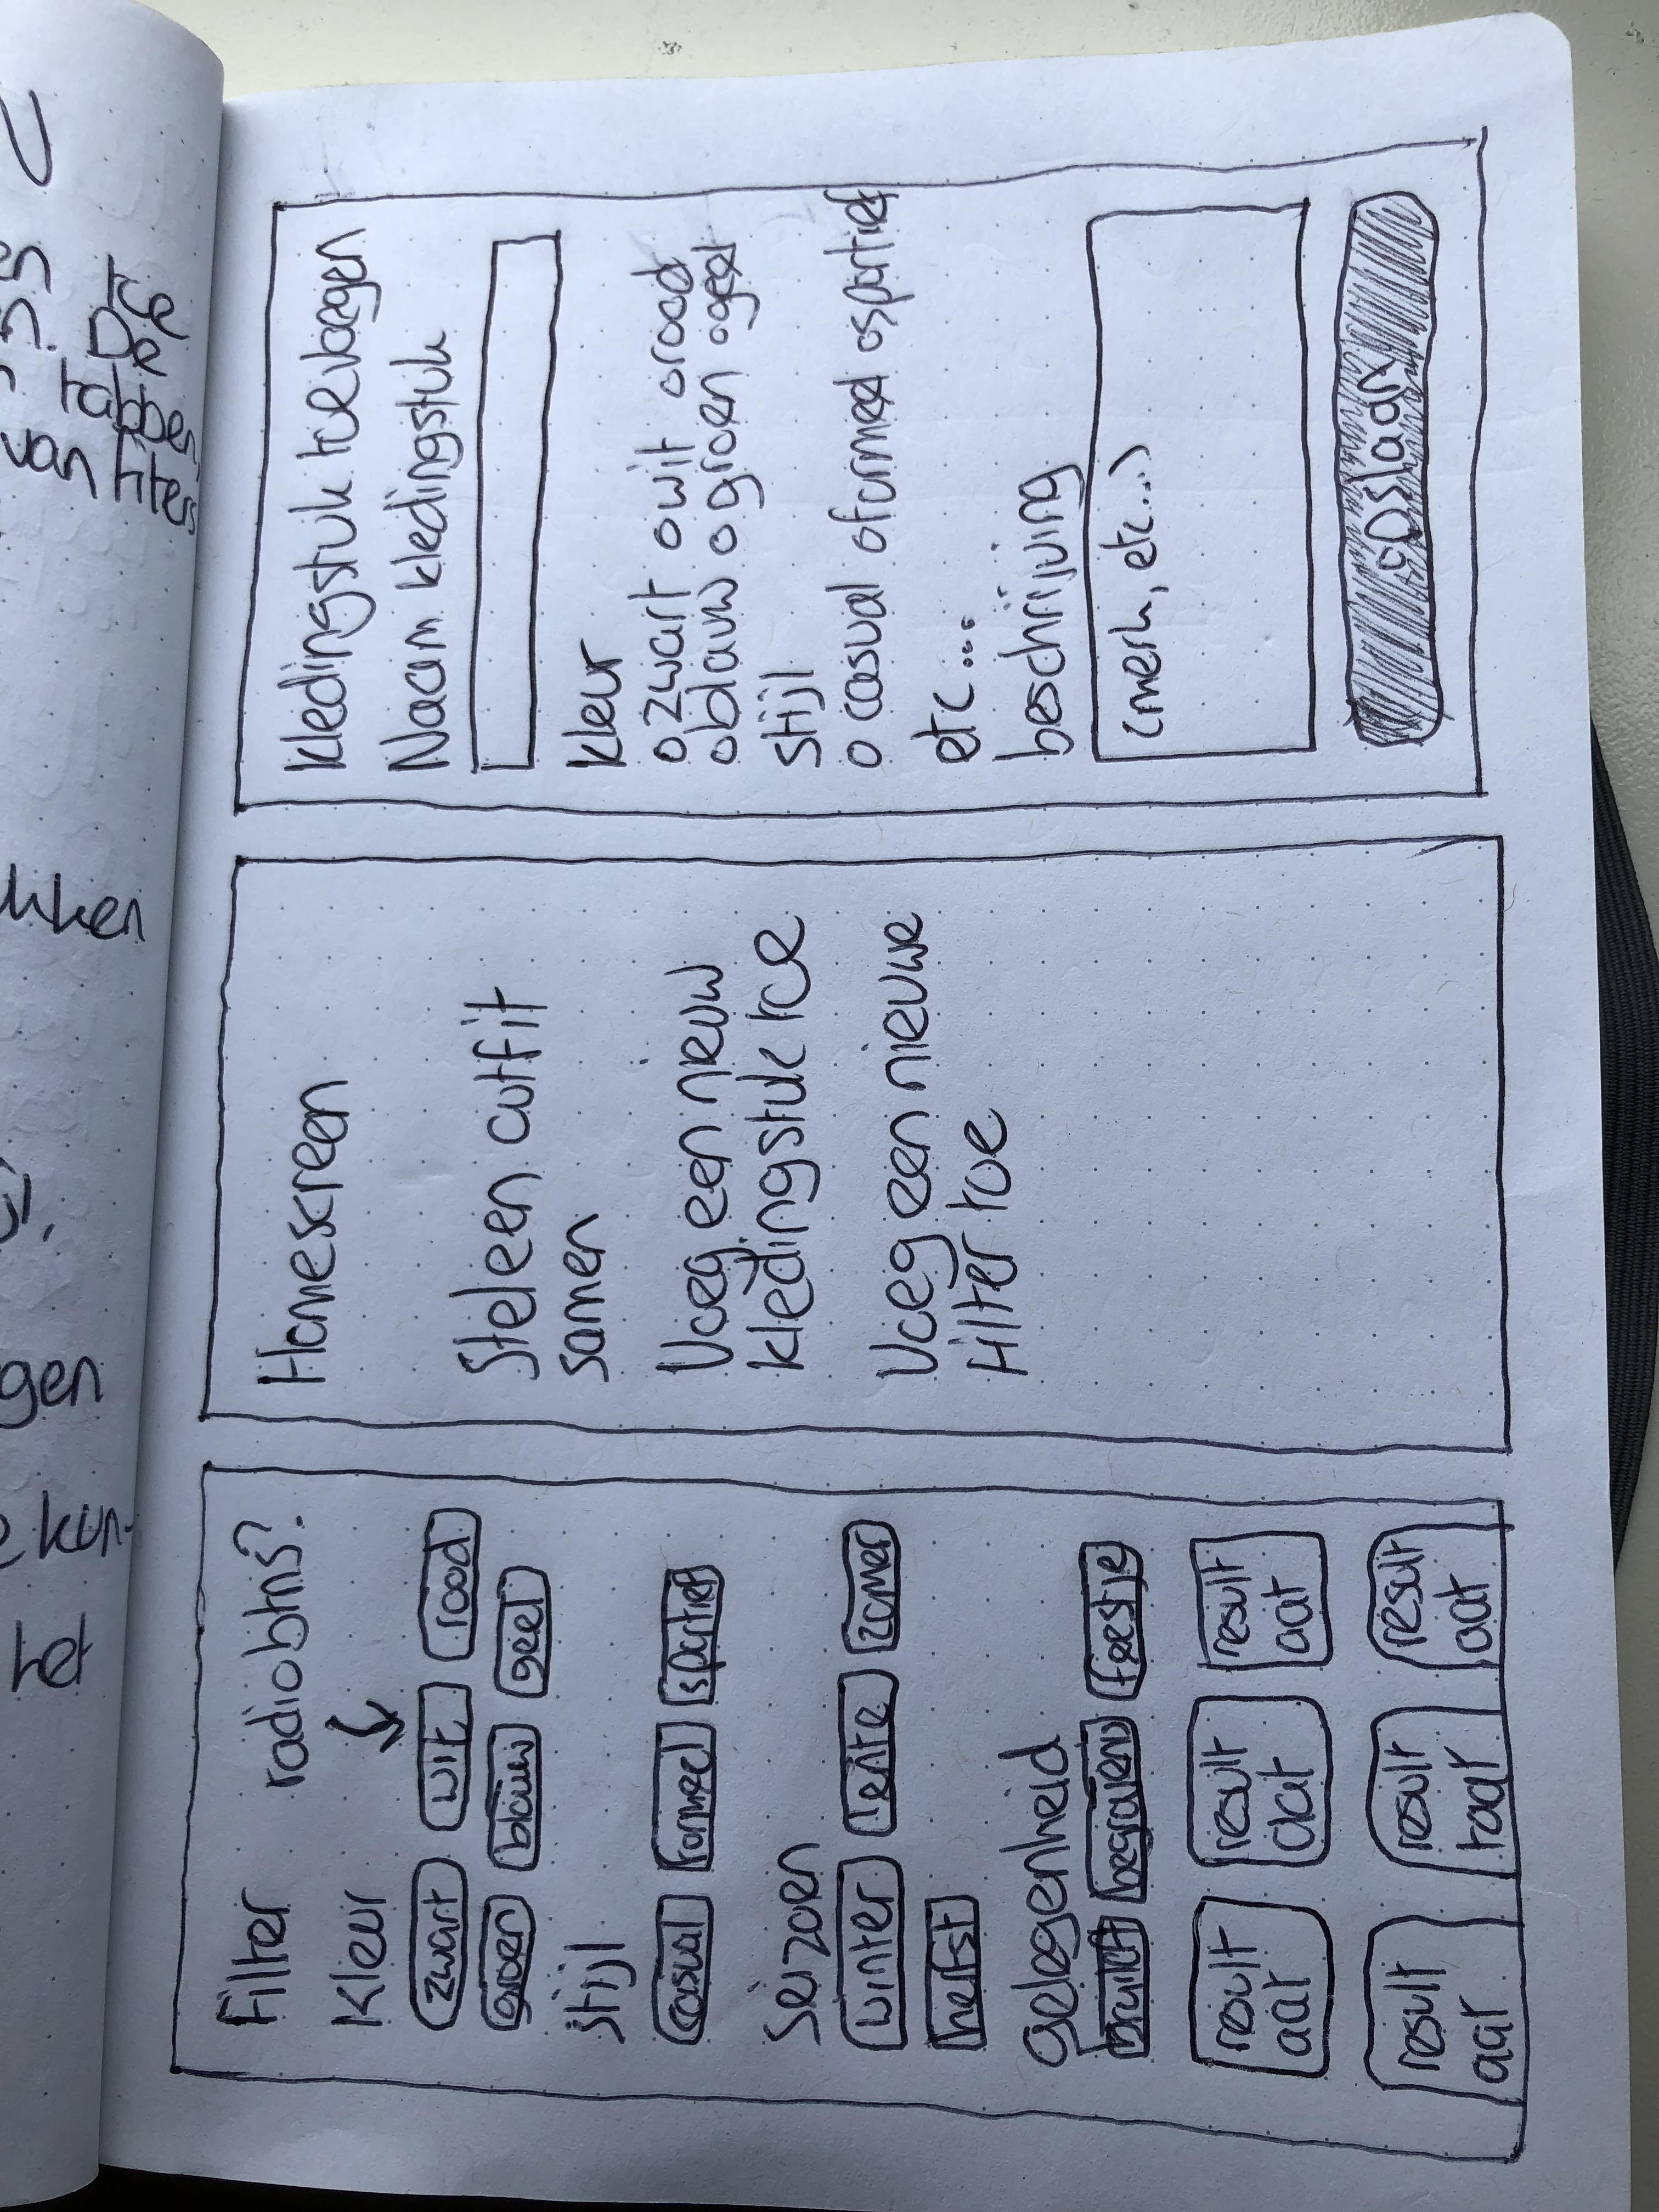 Filter radiobtns?
Kleur
zwart wit rood
groen blauw geel
stijl
casual formeel sportief
Seizoen
winter lente zomer
herfst
Gelegenheid
bruiloft begrafenis feestje
result aat
result aat
result aat
result aat
result taat
result aat
Homescreen
Stel een outfit
samen
Voeg een nieuw
kledingstuk toe
Voeg een nieuwe
filter toe
Kledingstuk toevoegen
Naam kledingstuk
Kleur
o zwart o wit o rood
o blauw o groen o geel
stijl
o casual o formeel o sportief
etc....
beschrijving
(merk, etc...)
Opslaan
ukken
gen
e kun-
het
van